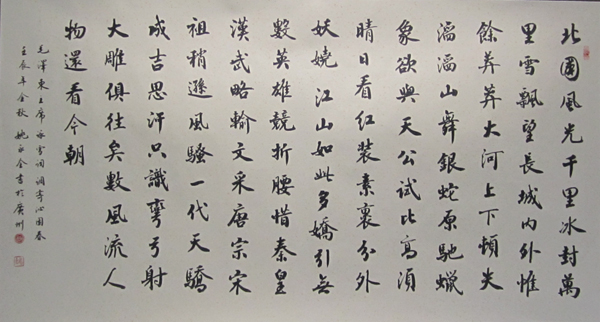 北國風光千里冰封萬
里雪飄望長城内外惟
餘莽莽大河上下頓失
滔滔山舞銀蛇原馳蠟
象欲與天公試比高須
晴日看红装素裹分外
妖嬈江山如此多嬌引無
數英雄競折腰惜秦皇
漢武略輸文采唐宗宋
祖稍遜風騷一代天驕
成吉思汗只識彎弓射
大雕俱往矣數風流人
物還看今朝
毛澤東主席詠雪詞調寄沁園春
壬辰年金秋姚書於廣州